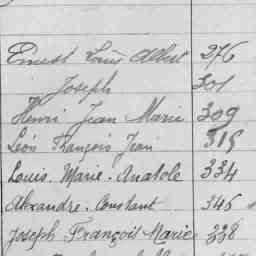 Ernest Louis Albert 276
Joseph 301
Henri Jean Marie 309
Léon François Jean 315
Louis. Marie. Anatole 334
Alexandre. Constant 346
Joseph François Marie 338